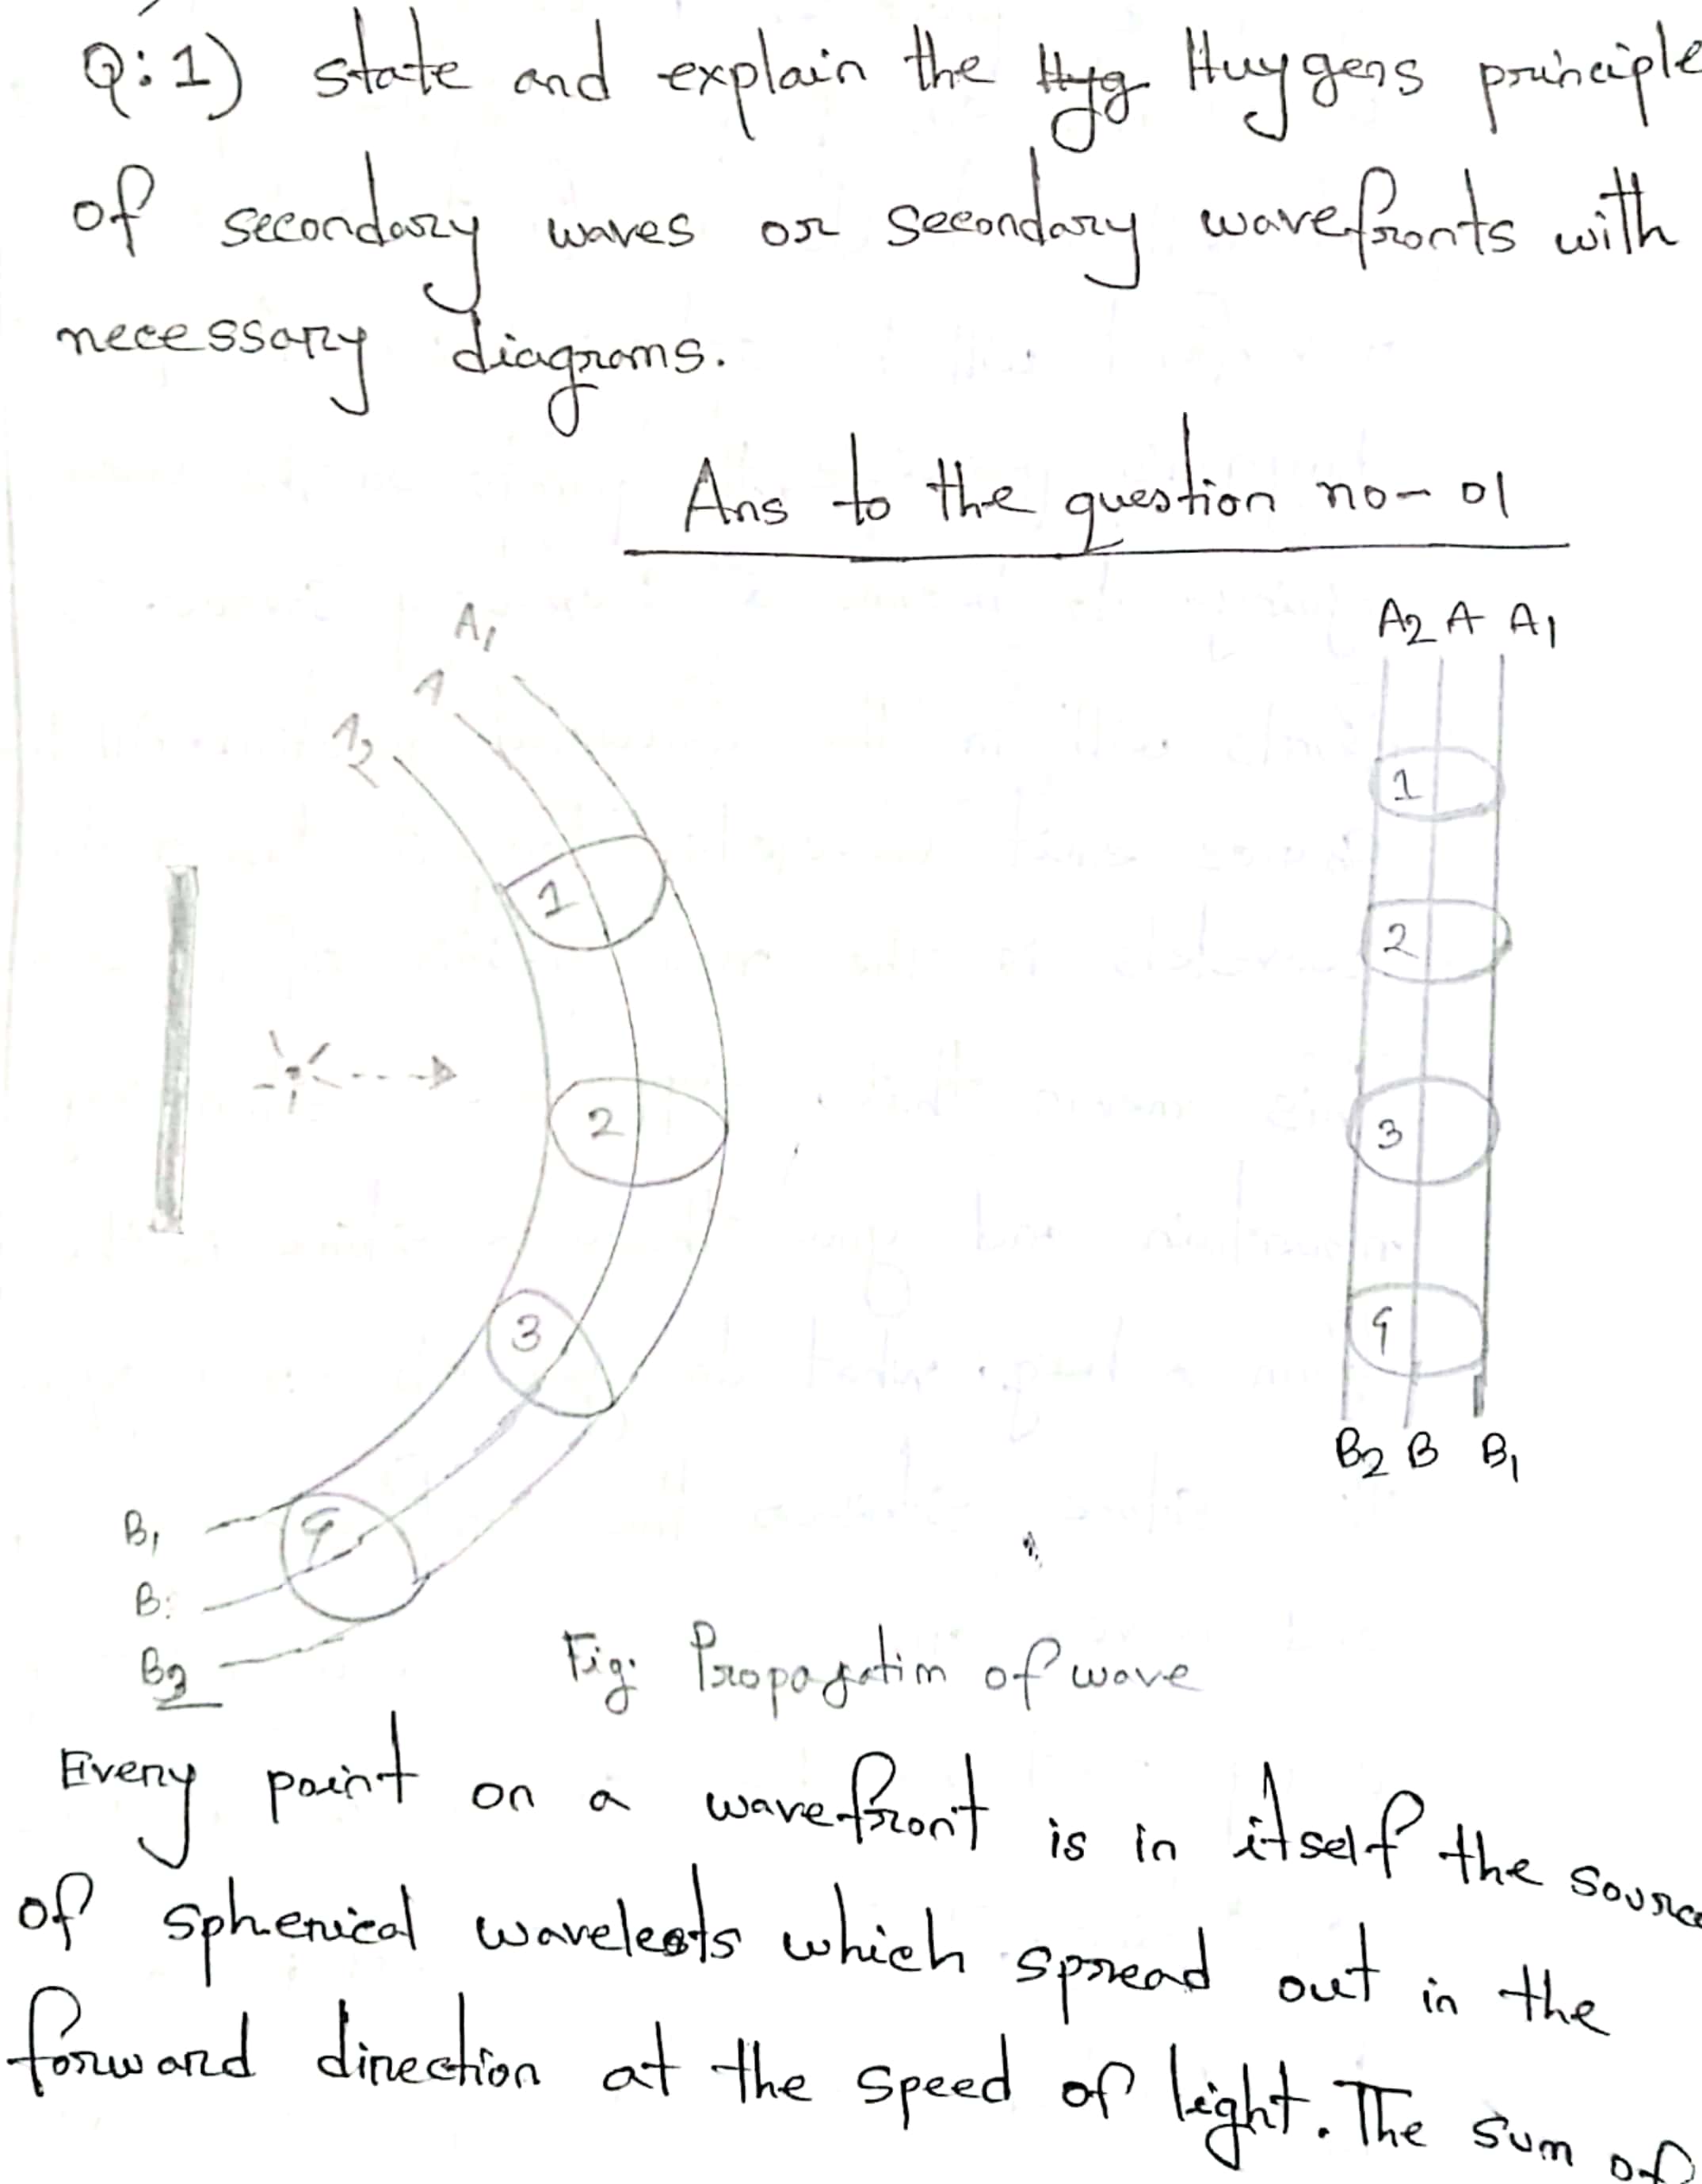 Q:1) state and explain the Hyg Huygens principle
of secondary waves or secondary wavefronts with
necessary diagrams.
Ans to the question no- 01
A1
A
A2
A2 A A1
1
2
3
4
1
2
3
4
B2 B B1
B1
B
B2
Fig: Propagation of wave
Every point on a wavefront is in itself the source
of spherical wavelets which spread out in the
forward direction at the speed of light. The sum of